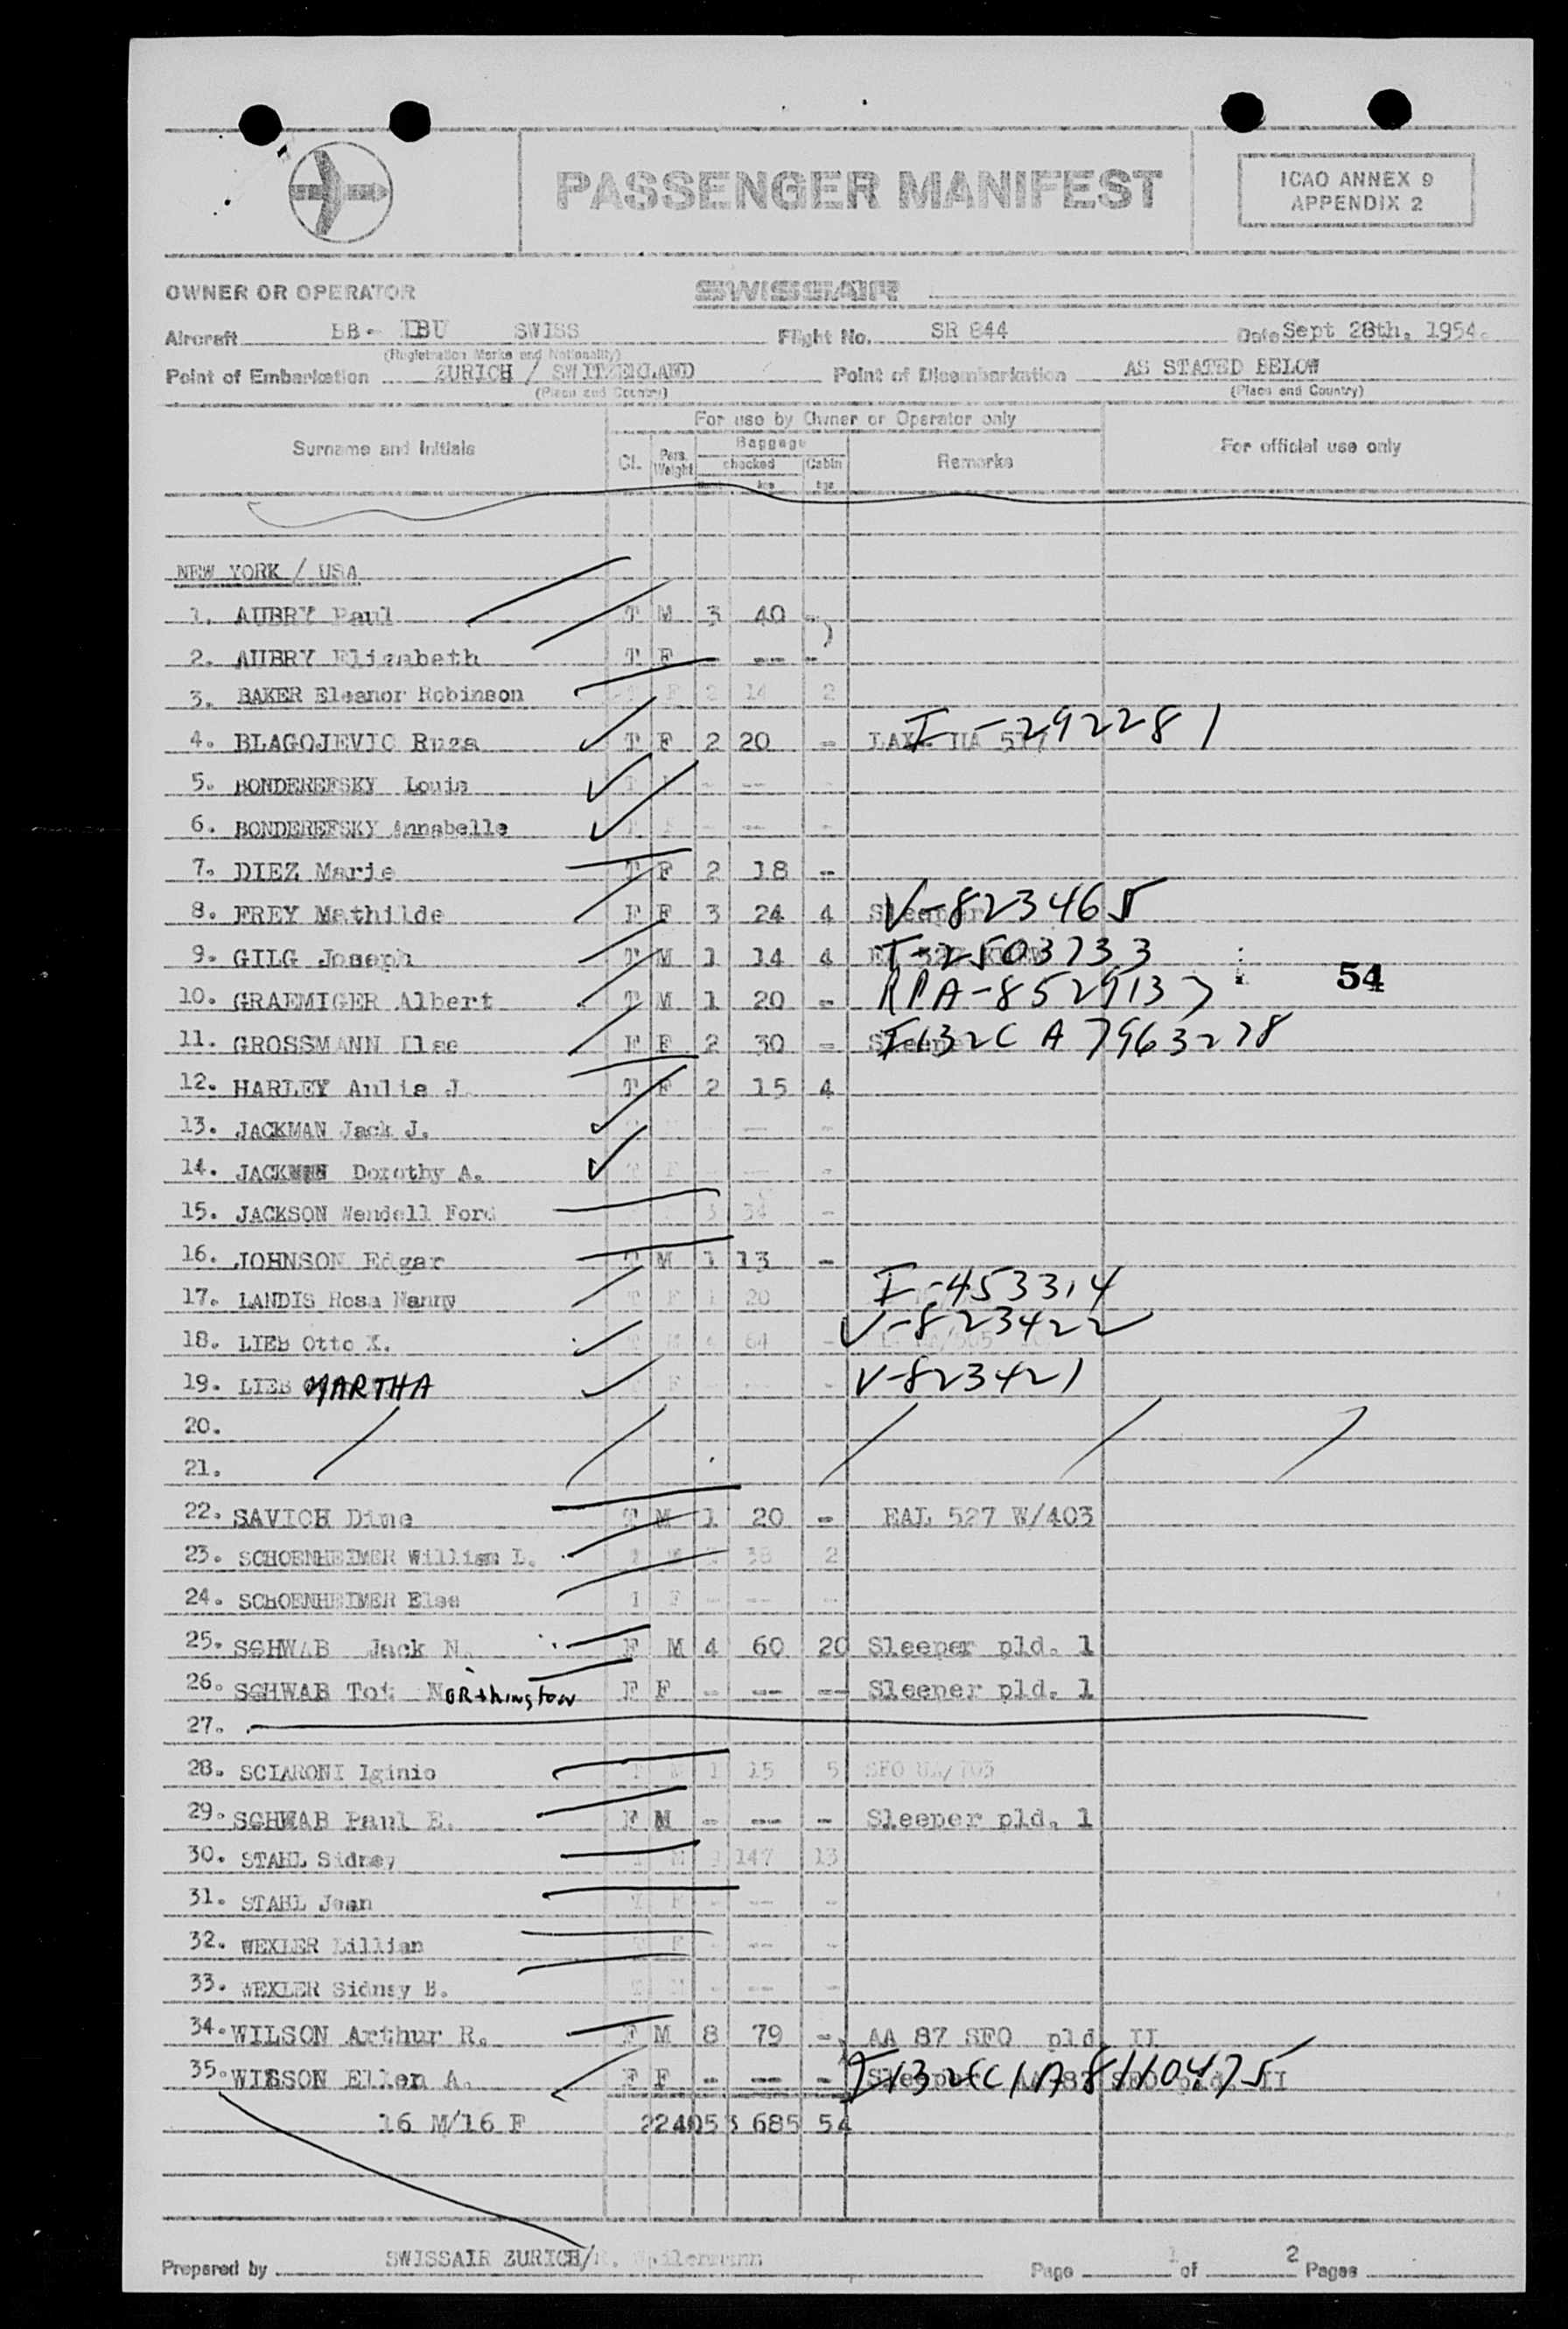 PASSENGER MANIFEST
ICAO ANNEX 9
APPENDIX 2
OWNER OR OPERATOR SWISSAIR
Aircraft IBU SWISS Flight No. SR 844 Date Sept 28th. 1954.
(Registration Marks and Nationality)
Point of Embarkation ZURICH / SWITZERLAND Point of Disembarkation AS STATED BELOW
(Place and Country) (Place and Country)
For use by Owner or Operator only
Surname and Initials Cl. Pers. Weight Baggage checked kgs Cabin kgs Remarks For official use only
NEW YORK / USA
1. AUBRY Paul T M 3 40 -
2. AUBRY Elisabeth T F - --- -
3. BAKER Eleanor Robinson T F 2 14 2
4. BLAGOJEVIC Ruza T F 2 20 - I-292281
5. BONDEREFSKY Louis - --- -
6. BONDEREFSKY Annabelle - --- -
7. DIEZ Marie T F 2 18 -
8. FREY Mathilde F F 3 24 4 Sleeper V-823465
9. GILG Joseph T M 1 14 4 I-2503733
10. GRAEMIGER Albert T M 1 20 - 54
11. GROSSMANN Ilse F F 2 30 - Sleeper I132C A 7963278
12. HARLEY Aulia J. T F 2 15 4
13. JACKMAN Jack J. --- -
14. JACKMAN Dorothy A. T F --- -
15. JACKSON Wendell Ford 3 34 -
16. JOHNSON Edgar T M 1 13 -
17. LANDIS Rosa Nanny T F 1 20 I-453314
18. LIEB Otto K. T M 4 64 - V-823422
19. LIEB MARTHA F - V-823421
20.
21.
22. SAVICH Dime T M 1 20 - EAL 527 W/403
23. SCHOENHEIMER William L. 38 2
24. SCHOENHEIMER Else F - --- -
25. SCHWAB Jack N. F M 4 60 20 Sleeper pld. 1
26. SCHWAB Tot WORthington F F - --- -- Sleeper pld. 1
27.
28. SCIARONI Iginio T M 1 15 5 SFO UA/703
29. SCHWAB Paul E. F M - --- - Sleeper pld. 1
30. STAHL Sidney T M 9 147 13
31. STAHL Jean T F - -- -
32. WEXLER Lillian T F - -- -
33. WEXLER Sidney B. T M - -- -
34. WILSON Arthur R. F M 8 79 - AA 87 SFO pld. II
35. WILSON Ellen A. F F - --- - Sleeper II
16 M/16 F 2240 53 685 54
Prepared by SWISSAIR ZURICH/ Page 1 of 2 Pages